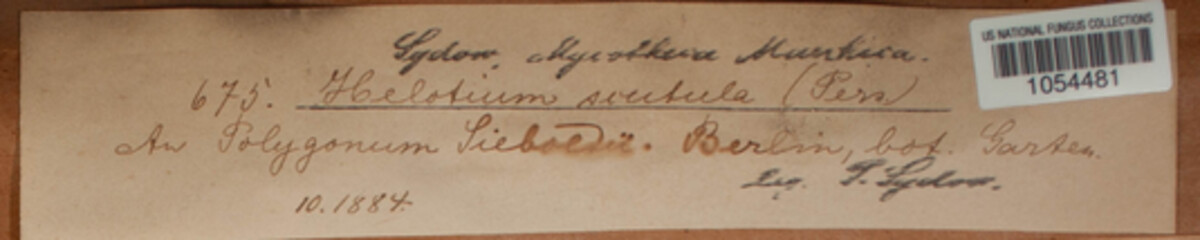 Sydow, Mycotheca Marchica.
US NATIONAL FUNGUS COLLECTIONS
1054481
675. Helotium scutula (Pers)
An Polygonum Sieboldii. Berlin, bot. Garten.
Leg. P. Sydow.
10.1884.